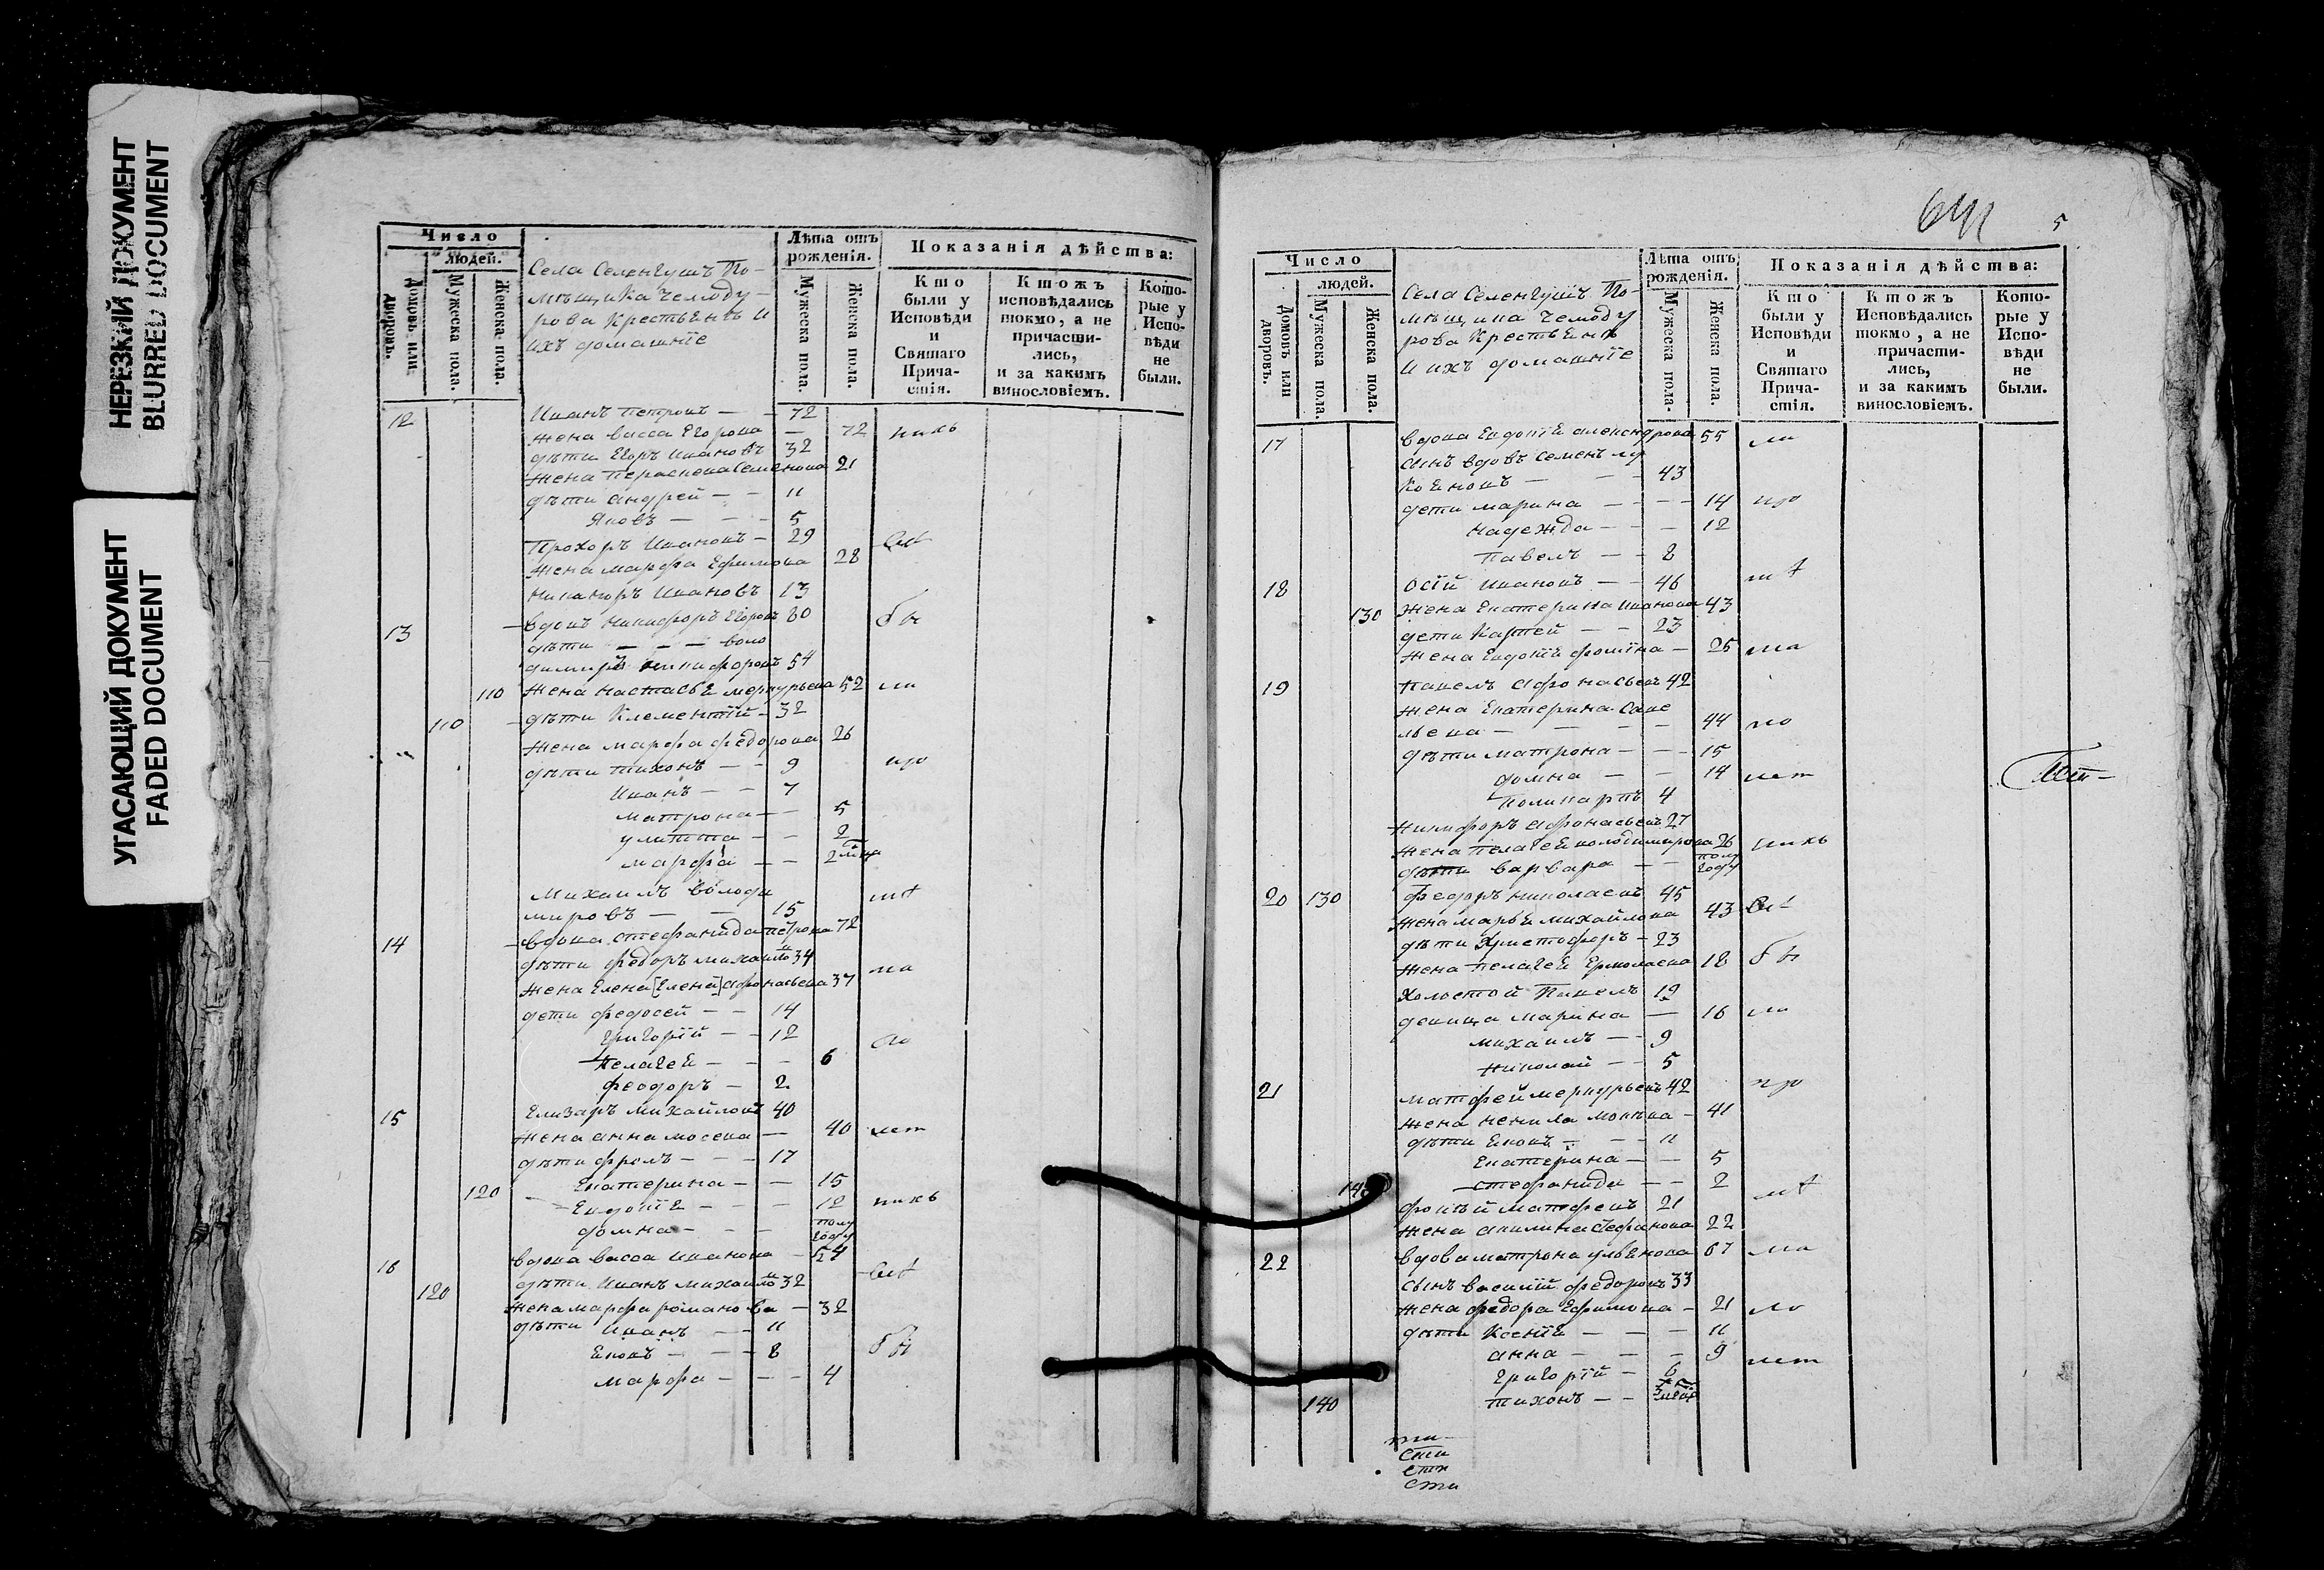 НЕРЕЗКИЙ ДОКУМЕНТ
BLURRED DOCUMENT
УГАСАЮЩИЙ ДОКУМЕНТ
FADED DOCUMENT
Число
людей.
Домовъ или дворовъ.
Мужеска пола.
Женска пола.
Села Селенгушъ По-
мѣщика Чемоду-
рова Крестьенъ и
ихъ домашніе
Лѣта отъ рожденія.
Мужеска пола.
Женска пола.
Показанія дѣйства:
Кто были у Исповѣди и Святаго Прича-стія.
Ктожъ исповѣдались токмо, а не причасти-лись, и за какимъ винословіемъ.
Кото-рые у Испо-вѣди не были.
12 Иванъ Петровъ — 72
жена васса Егорова — 72
дѣти Егоръ Ивановъ 32
жена Пераскева Семенова 21
дѣти андрей — — 11
Яковъ — — — 5
Прохоръ Ивановъ — 29
жена марфа Ефимова 28
никаноръ Ивановъ 13
13 вдовъ никифоръ Егоровъ 80
дѣти — — — воло
димиръ никифоровъ 54
110 жена настасьЕ меркурьева 52
110 дѣти Клементий — 32
жена марфа федорова 26
дѣти тихонъ — — 9
Иванъ — — 7
матрона — — 5
улитта — — 2
марфа — — 2 мца
михаилъ володи
мировъ — — 15
14 вдова стефанида петрова 72
дѣти федоръ михаило 34
жена Елена [Елена] афонасьева 37
дети федосей — — 14
Григорій — — 12
пелагеЕ — — — 6
феодоръ — 2
15 Елизаръ михайловъ 40
жена анна мосева — 40 лет
дѣти фролъ — — — 17
120 Екатерина — — 15
ЕвдотіЕ — — — 12
домна — — — полу году
16 вдова васса Иванова — 54
дѣти Иванъ михаило 32
120 жена марфа романова — 32
дѣти Иванъ — — 11
Ековъ — — — 8 бы
марфа — — — 4
641
5
Число
людей.
Домовъ или дворовъ.
Мужеска пола.
Женска пола.
Села Селенгушъ По-
мѣщика Чемоду
рова Крестьенъ
и ихъ домашніе
Лѣта отъ рожденія.
Мужеска пола.
Женска пола.
Показанія дѣйства:
Кто были у Исповѣди и Святаго Прича-стія.
Ктожъ Исповѣдались токмо, а не причасти-лись, и за какимъ винословіемъ.
Кото-рые у Испо-вѣди не были.
17 вдова ЕвдотіЕ александрова 55
сынъ вдовъ Семенъ лу
коЕновъ — — — 43
дети марина — — — 14
надежда — — — 12
Павелъ — — 8
18 Осій Ивановъ — — 46
130 жена Екатерина Иванова 43
дети — — 23
жена ЕвдотіЕ фоміна — 25
19 павелъ афонасьевъ 42
жена Екатерина Саве
льева — — — — 44
дѣти матрона — — 15
домна — — 14 лет
поликарпъ 4
никифоръ афонасьевъ 27
жена пелагеЕ володимирова 26
дѣти варвара — — полу году
20 130 федоръ николаевъ 45
жена марьЕ михайлова 43
дѣти Христофоръ — 23
жена пелагеЕ Ермолаева 18 бы
Холостой Павелъ 19
девица марина — 16
михаилъ — — 9
николай — — 5
21 матфей меркурьевъ 42
жена ненила мокѣва — 41
дѣти Ековъ — — — 11
Екатерина — — 5
стефанида — — 2
матфеевъ 21
жена акилина стефанова 22
22 вдова матрона ульЕнова 67
сынъ василій федоровъ 33
жена федора Ефимова — 21
дѣти КсеніЕ — — — 11
анна — — — 9 лет
Григорій — 6
140 тихонъ — —
сти
сти
сти